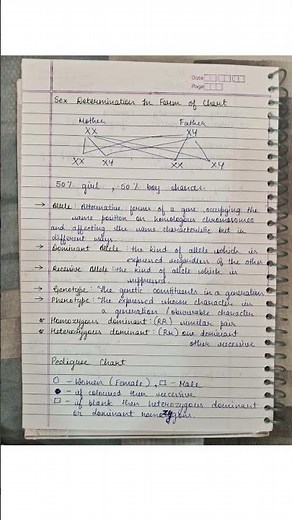 Date
Page
Sex Determination In Form of Chart
Mother Father
XX XY
XX XY XX XY
50% girl, 50% boy chances
→ Allele: Alternative forms of a gene, occupying the
same position on homologous chromosomes
and affecting the same characteristic but in
different ways
→ Dominant Allele: the kind of allele which is
expressed regardless of the other
→ Recessive Allele: the kind of allele which is
suppressed.
→ Genotype: The genetic constituents in a generation
→ Phenotype: The expressed character in
a generation / observable character
Homozygous dominant: (RR) similar pair
Heterozygous dominant: (Rr) one dominant
other recessive
Pedigree Chart
○ - Women (Female), □ - Male
● - if coloured then recessive
□ - if blank then heterozygous dominant
or dominant homozygous.